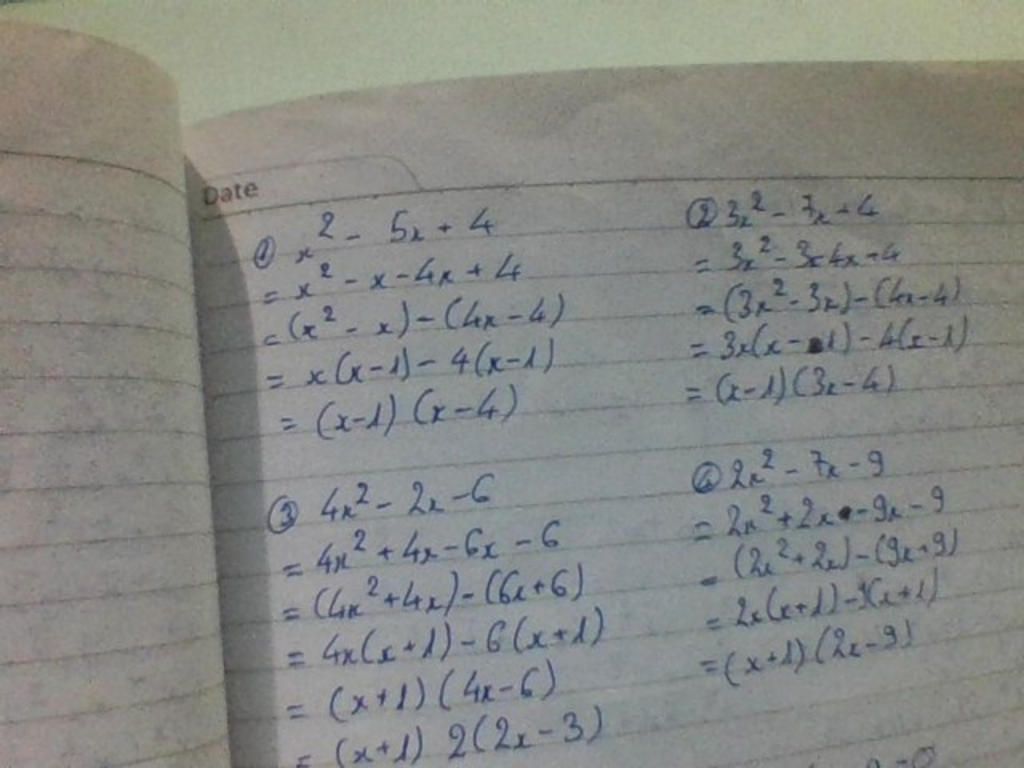 Date
① x² - 5x + 4
= x² - x - 4x + 4
= (x² - x) - (4x - 4)
= x(x-1) - 4(x-1)
= (x-1) (x-4)
② 3x² - 7x + 4
= 3x² - 3x 4x + 4
= (3x² - 3x) - (4x - 4)
= 3x(x - 1) - 4(x-1)
= (x-1)(3x-4)
③ 4x² - 2x - 6
= 4x² + 4x - 6x - 6
= (4x² + 4x) - (6x + 6)
= 4x(x+1) - 6(x+1)
= (x+1) (4x-6)
= (x+1) 2(2x-3)
④ 2x² - 7x - 9
= 2x² + 2x - 9x - 9
= (2x² + 2x) - (9x + 9)
= 2x(x+1) - 9(x+1)
= (x+1)(2x-9)